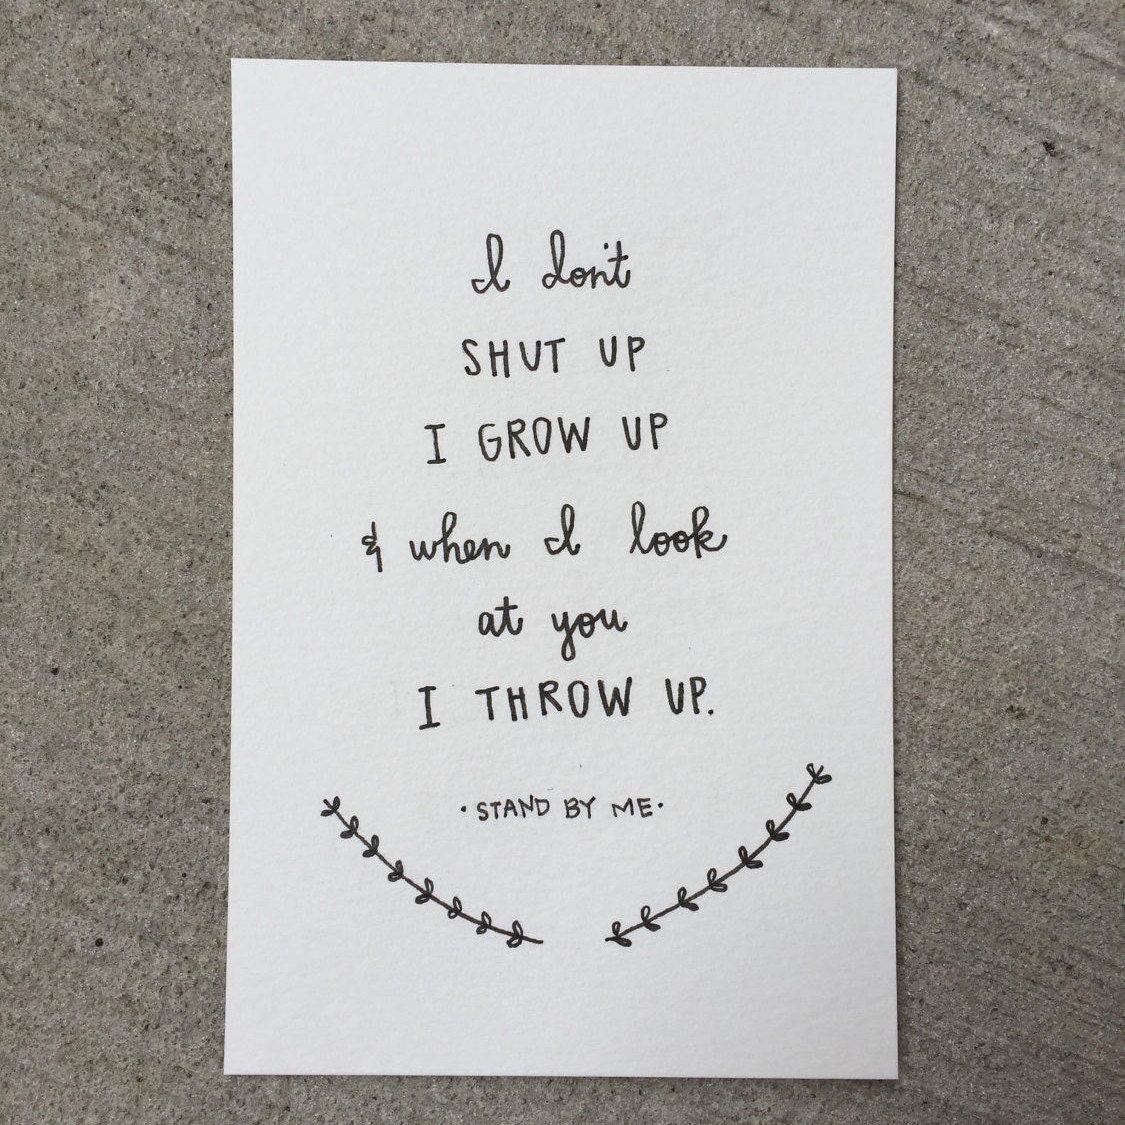 I don't
SHUT UP
I GROW UP
& when I look
at you
I THROW UP.
• STAND BY ME •